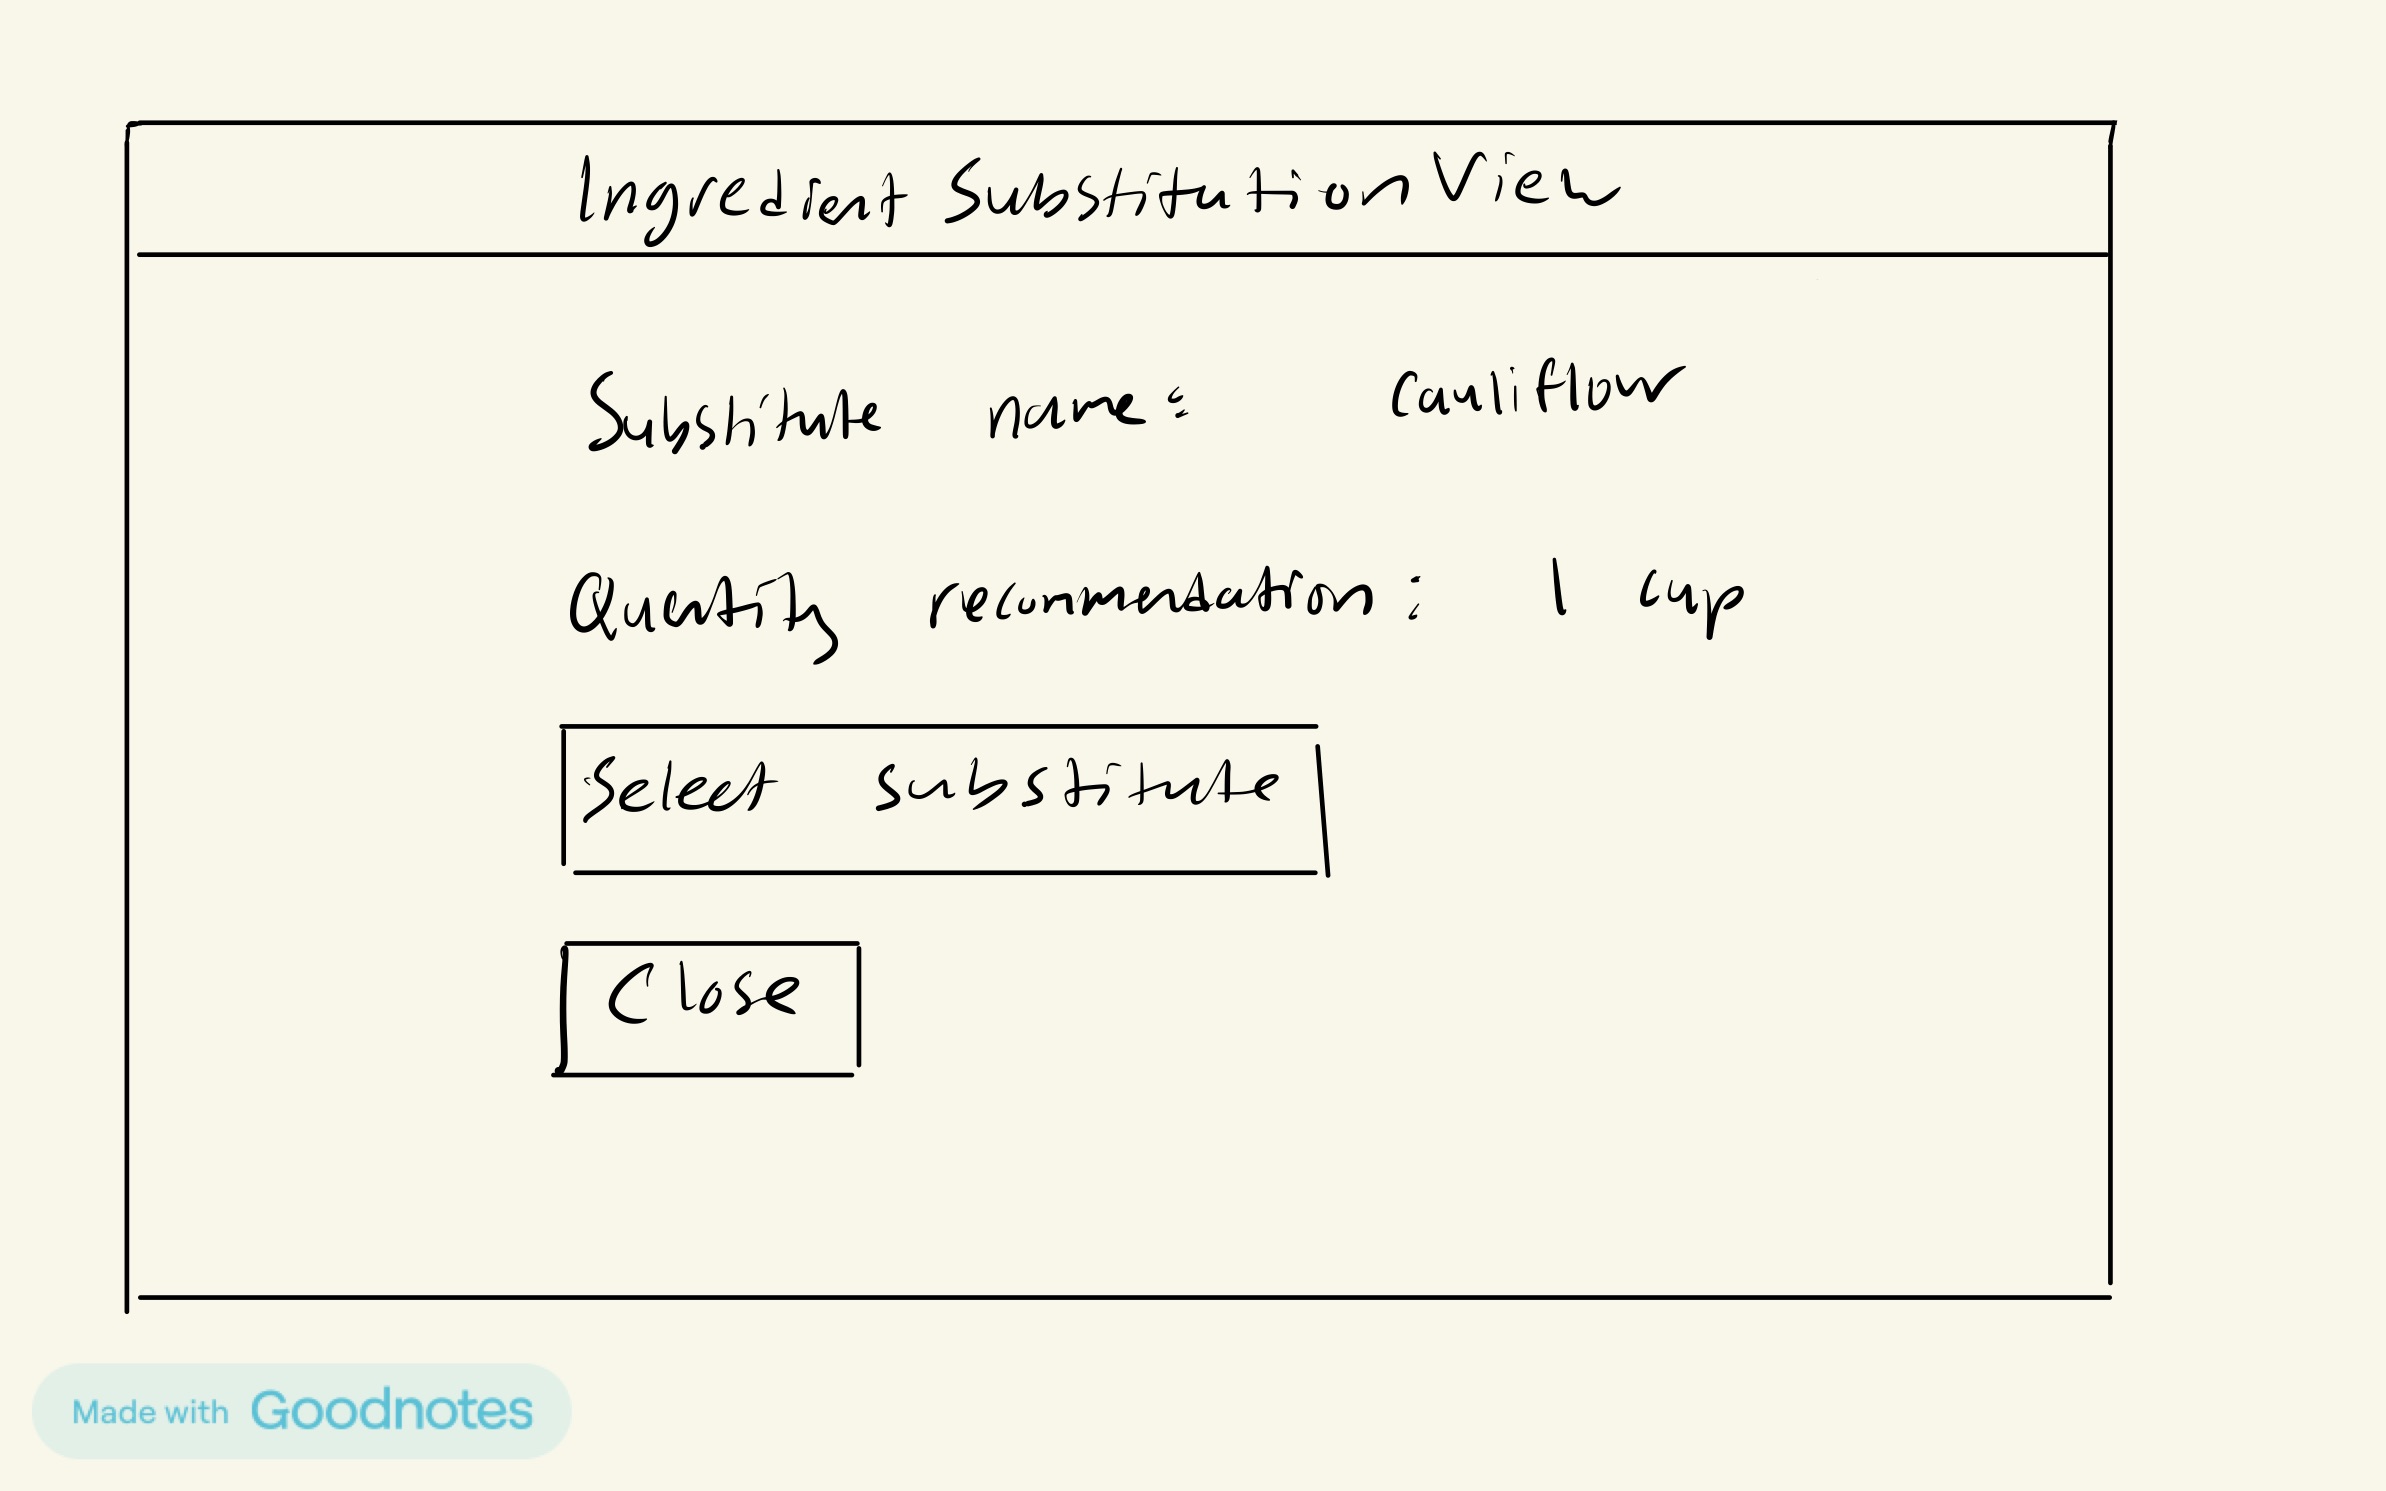 Ingredient Substitution View
Substitute name: cauliflow
Quantity recommendation: 1 cup
Select substitute
Close
Made with Goodnotes